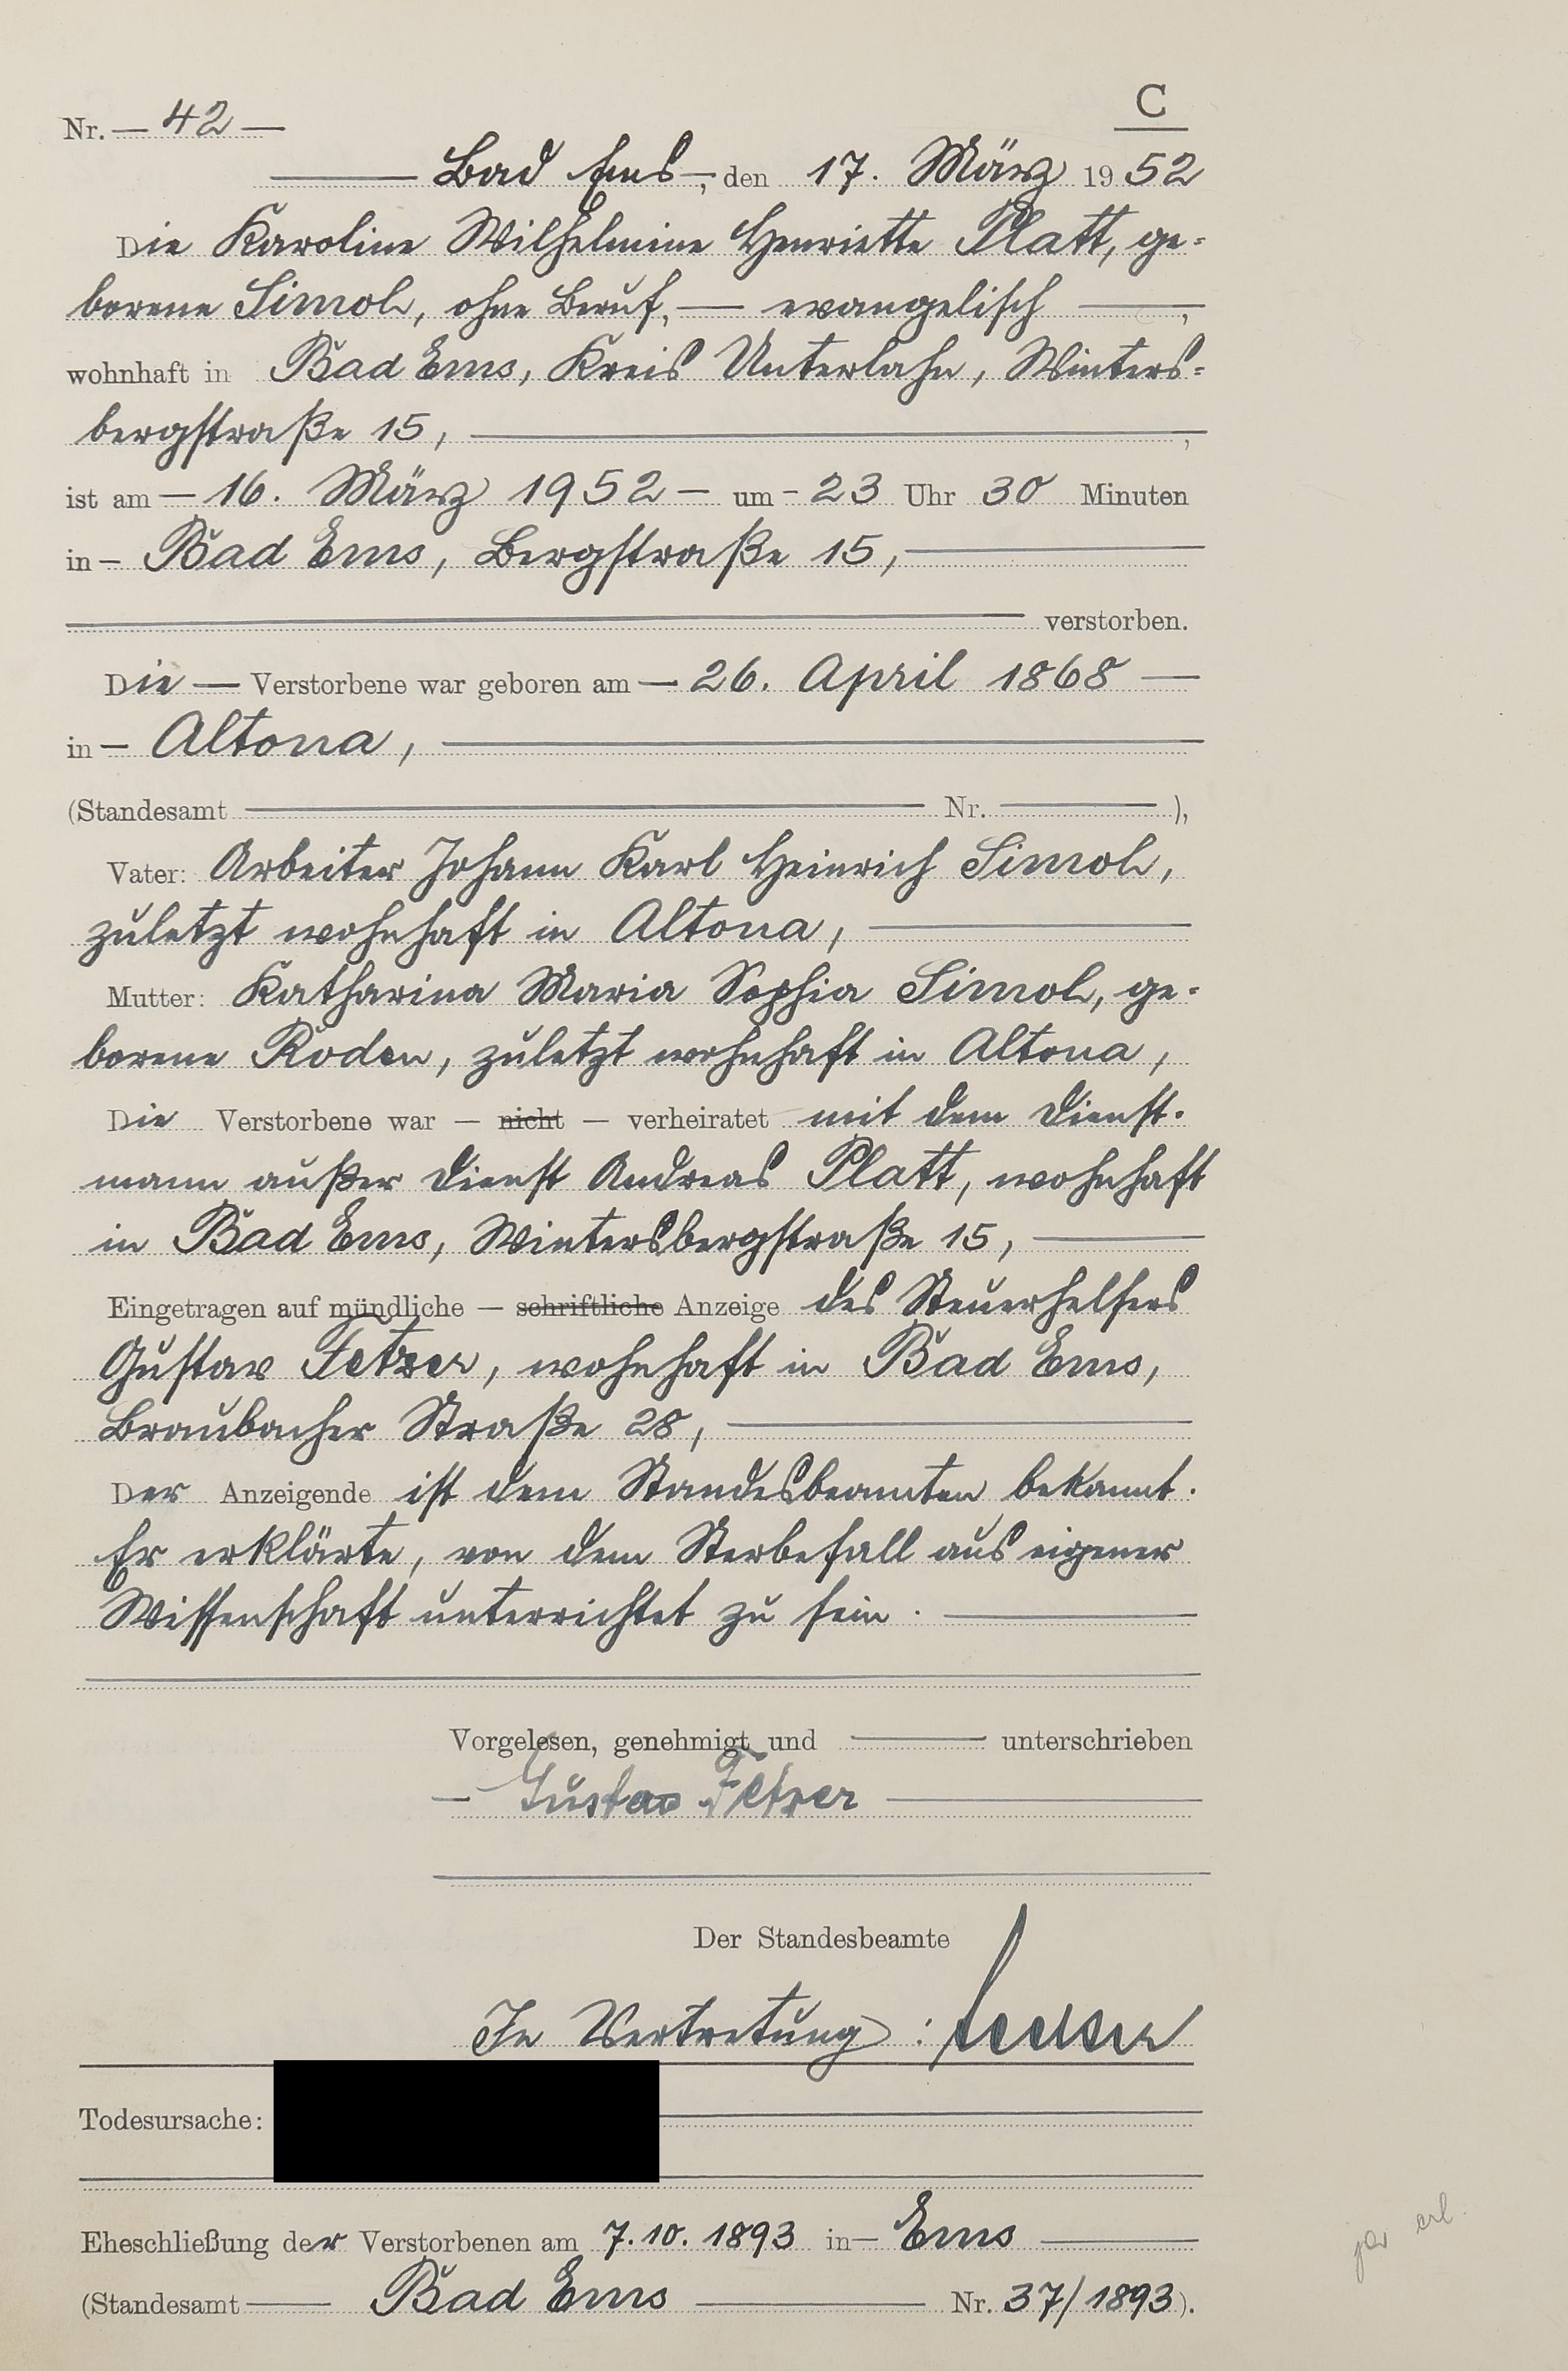 C
Nr. — 42 —
Bad Ems, den 17. März 1952
Die Karoline Wilhelmine Henriette Platt, ge=
borene Simol, ohne Beruf, — evangelisch —,
wohnhaft in Bad Ems, Kreis Unterlahn, Winters=
bergstraße 15,
ist am — 16. März 1952 — um — 23 Uhr 30 Minuten
in — Bad Ems, Bergstraße 15,
verstorben.
Die — Verstorbene war geboren am — 26. April 1868 —
in — Altona,
(Standesamt — Nr. — ),
Vater: Arbeiter Johann Karl Heinrich Simol,
zuletzt wohnhaft in Altona,
Mutter: Katharina Maria Sophia Simol, ge-
borene Roden, zuletzt wohnhaft in Altona,
Die Verstorbene war — nicht — verheiratet mit dem Dienst-
mann außer Dienst Andreas Platt, wohnhaft
in Bad Ems, Wintersbergstraße 15,
Eingetragen auf mündliche — schriftliche Anzeige des Steuerhelfers
Gustav Fetzer, wohnhaft in Bad Ems,
Braubacher Straße 28,
Der Anzeigende ist dem Standesbeamten bekannt.
Er erklärte, von dem Sterbefall aus eigener
Wissenschaft unterrichtet zu sein.
Vorgelesen, genehmigt und — unterschrieben
— Gustav Fetzer
Der Standesbeamte
In Vertretung:
Todesursache:
Eheschließung der Verstorbenen am 7.10.1893 in — Ems
(Standesamt — Bad Ems — Nr. 37/1893).